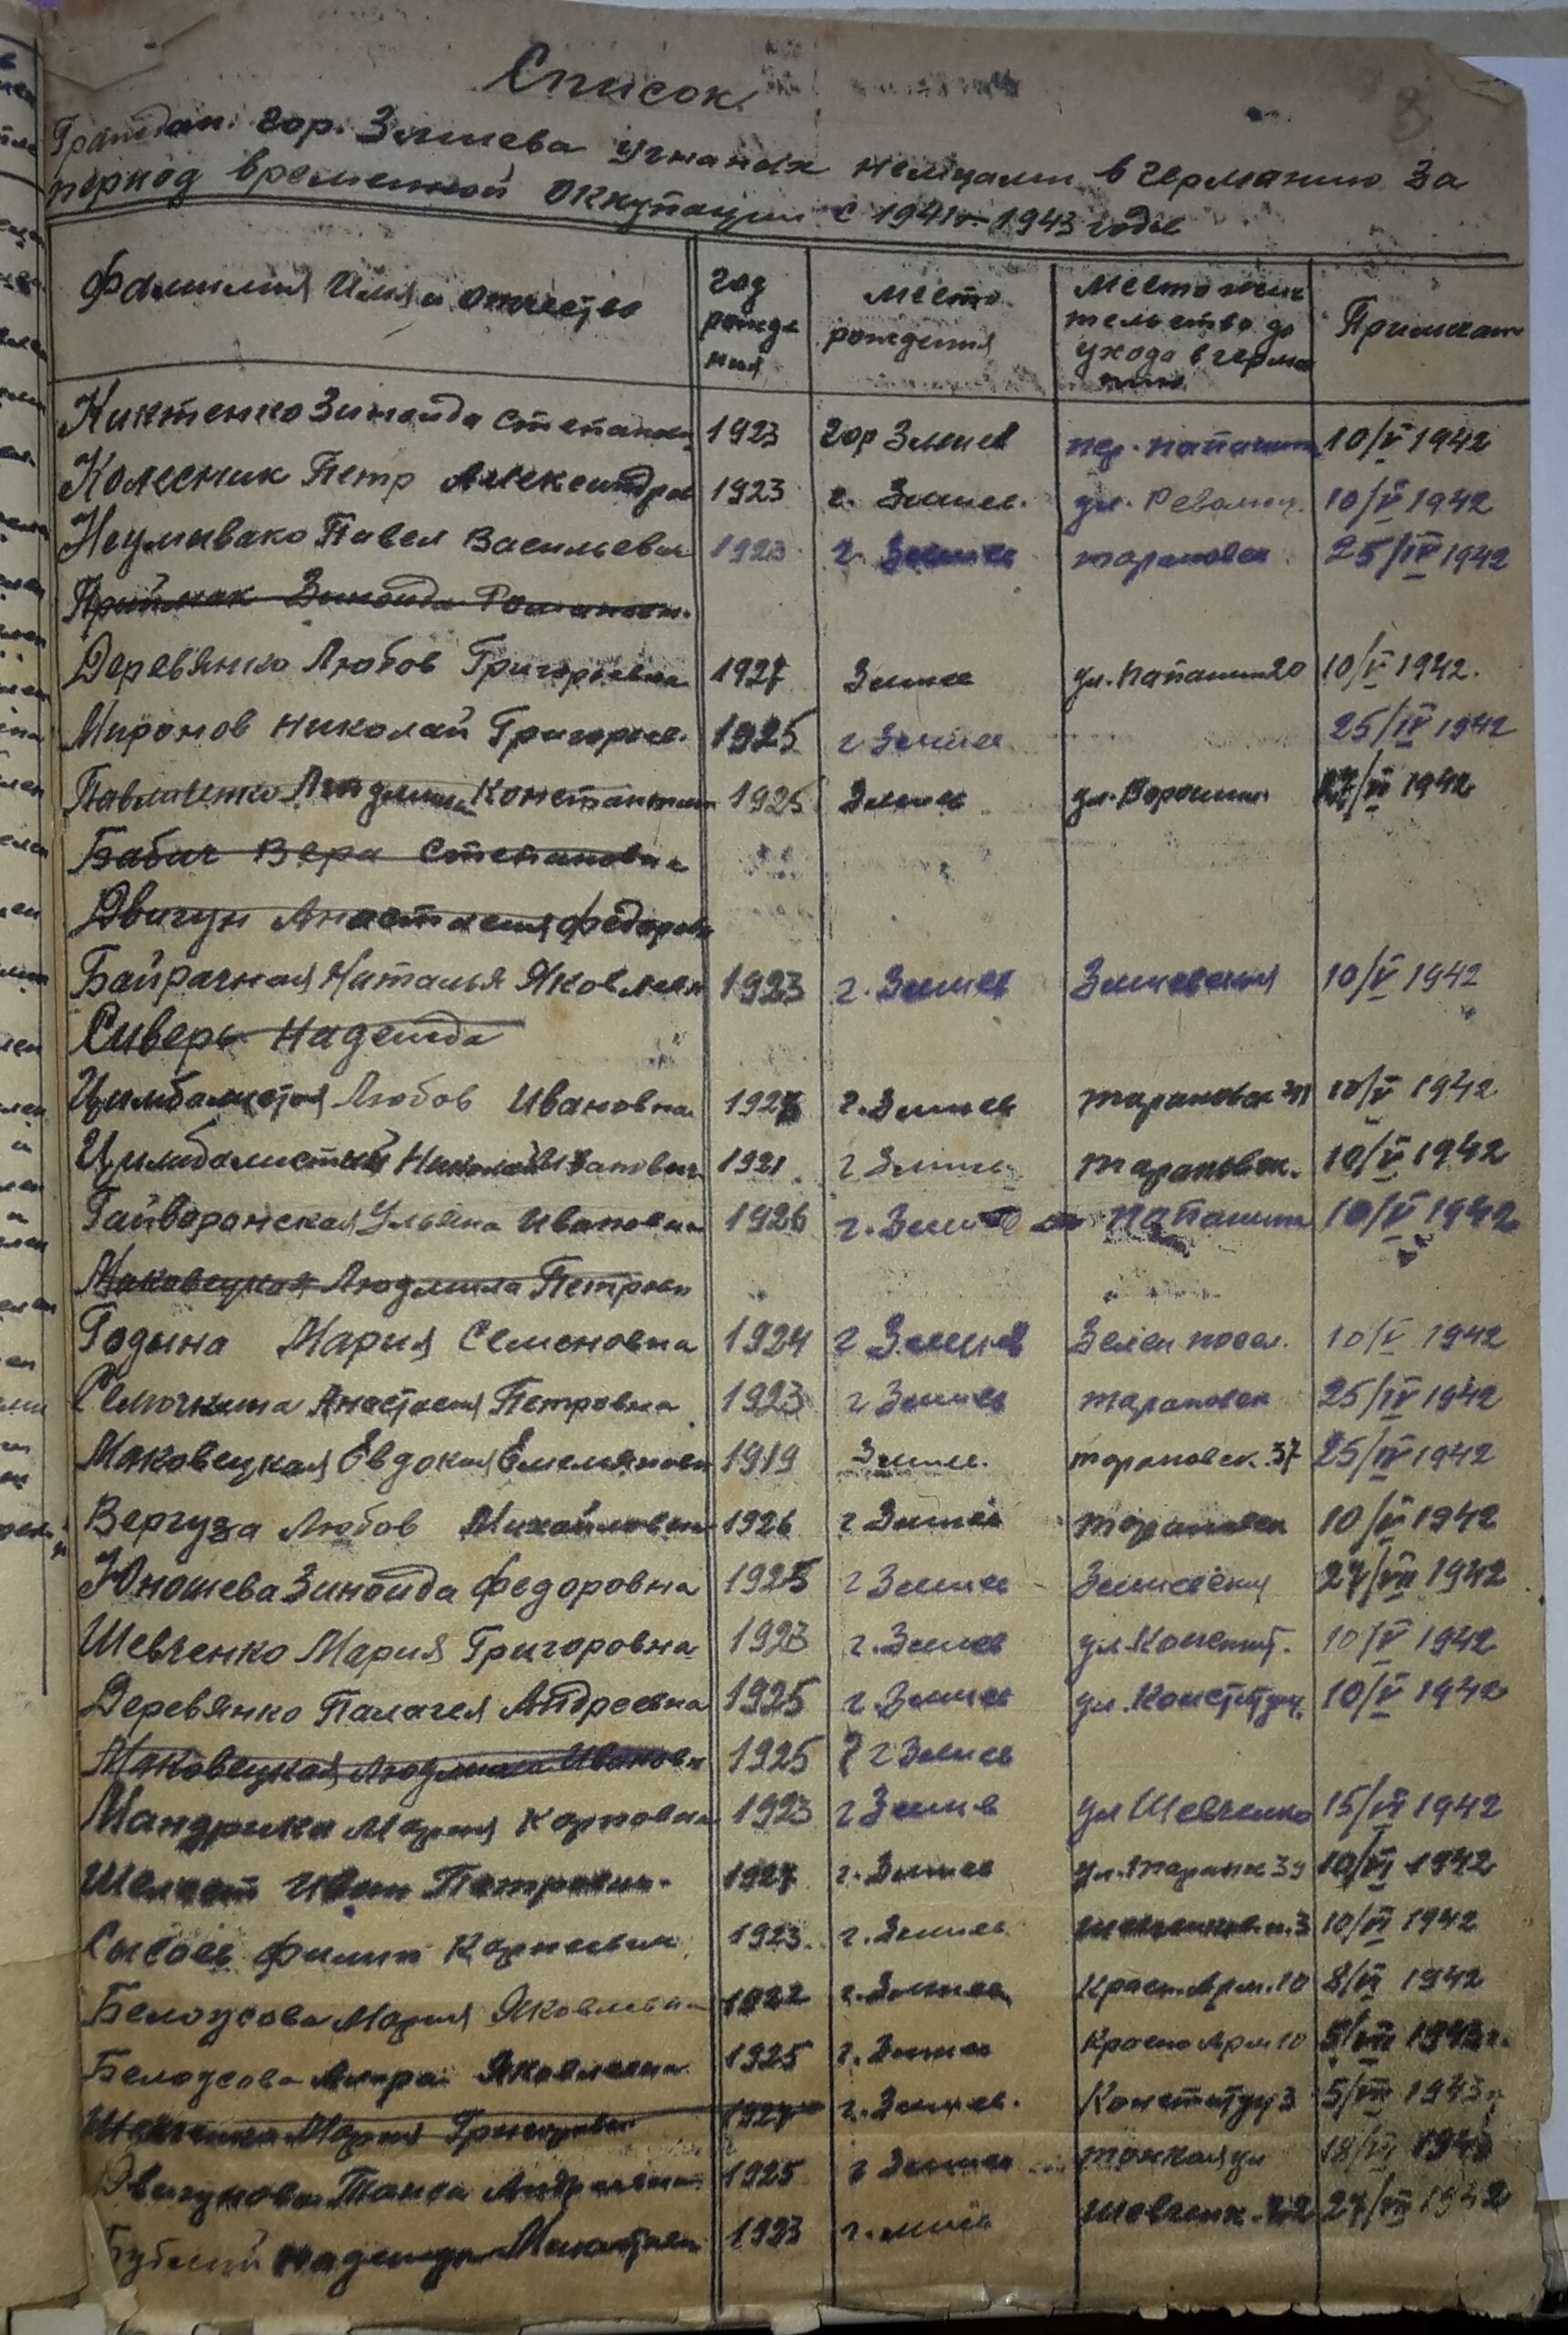 Список
Граждан гор. Змиева угнаных немцами в германию за
период временной оккупации с 1941г-1943 годы
Фамилия Имя и отчество год рожде ния место рождения место жит тельство до ухода в герма нию Примечан
Киктенко Зинаида Степанов 1923 гор Змиев пер. Папанина 10/V 1942
Колесник Петр Александров 1923 г. Змиев. ул. Революц. 10/V 1942
Неумывако Павел Васильевич 1923 г. Змиев тарановск 25/IV 1942
Приймак Зинаида Романовн.
Деревянко Любов Григорьевна 1927 Змиев ул. Папанин 20 10/V 1942.
Миронов Николай Григорьев. 1925 г Змиев 25/IV 1942
Павлитко Людмила Константин 1925 Змиев ул. Ворошил. 27/VII 1942
Бабич Вера Степановна
Двигун Анастасия Федоровн
Байрачная Наталья Яковлевн 1923 г. Змиев Змиевская 10/V 1942
Сиверь Надежда
Цимбалистая Любов Ивановна 1927 г. Змиев тарановск 41 10/V 1942
Цимбалистый Николай Иванович 1921 г Змиев тарановск. 10/V 1942
Гайворонская Ульяна Ивановна 1926 г. Змиев Папанина 10/V 1942
Маковецкая Людмила Петровн
Годына Мария Семеновна 1924 г Змиев Зелен посел. 10/V 1942
Семочкина Анастасия Петровна 1923 г Змиев тарановск 25/IV 1942
Маковецкая Евдокия Емельяновн 1919 Змиев. тарановск. 37 25/IV 1942
Вергуза Любов Михайловна 1926 г Змиев тарановск 10/V 1942
Юношева Зинаида Федоровна 1925 г Змиев Змиевская 27/VII 1942
Шевченко Мария Григоровна 1923 г. Змиев ул. Констит. 10/V 1942
Деревянко Палагея Андреевна 1925 г Змиев ул. Конституц. 10/V 1942
Маковецкая Людмила Ивановн 1925 г Змиев
Мандрыка Мария Карповна 1923 г Змиев ул Шевченко 15/VI 1942
Иван Петрович. 1927 г. Змиев ул. Таранк 39 10/VI 1942
Сысоев Филип Корнеевич 1923. г. Змиев 10/VI 1942
Белоусова Мария Яковлевна 1922 г. Змиев Красн. Арм. 10 8/VI 1942
Белоусова Яковлевна 1925 г. Змиев Красно Арм 10 5/VII 1943г.
Шевченко Мария Григоровн 1927 г. Змиев. Конституц 3 5/VII 1943г
Двигунова Андреевна 1925 г Змиев ул 18/VI 1942
Надежда 1923 Шевченк. 27/VII 1942